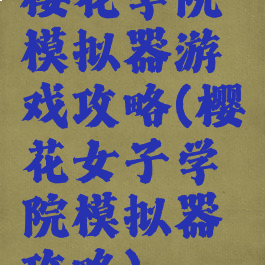 樱花学院
模拟器游
戏攻略(樱
花女子学
院模拟器
攻略)